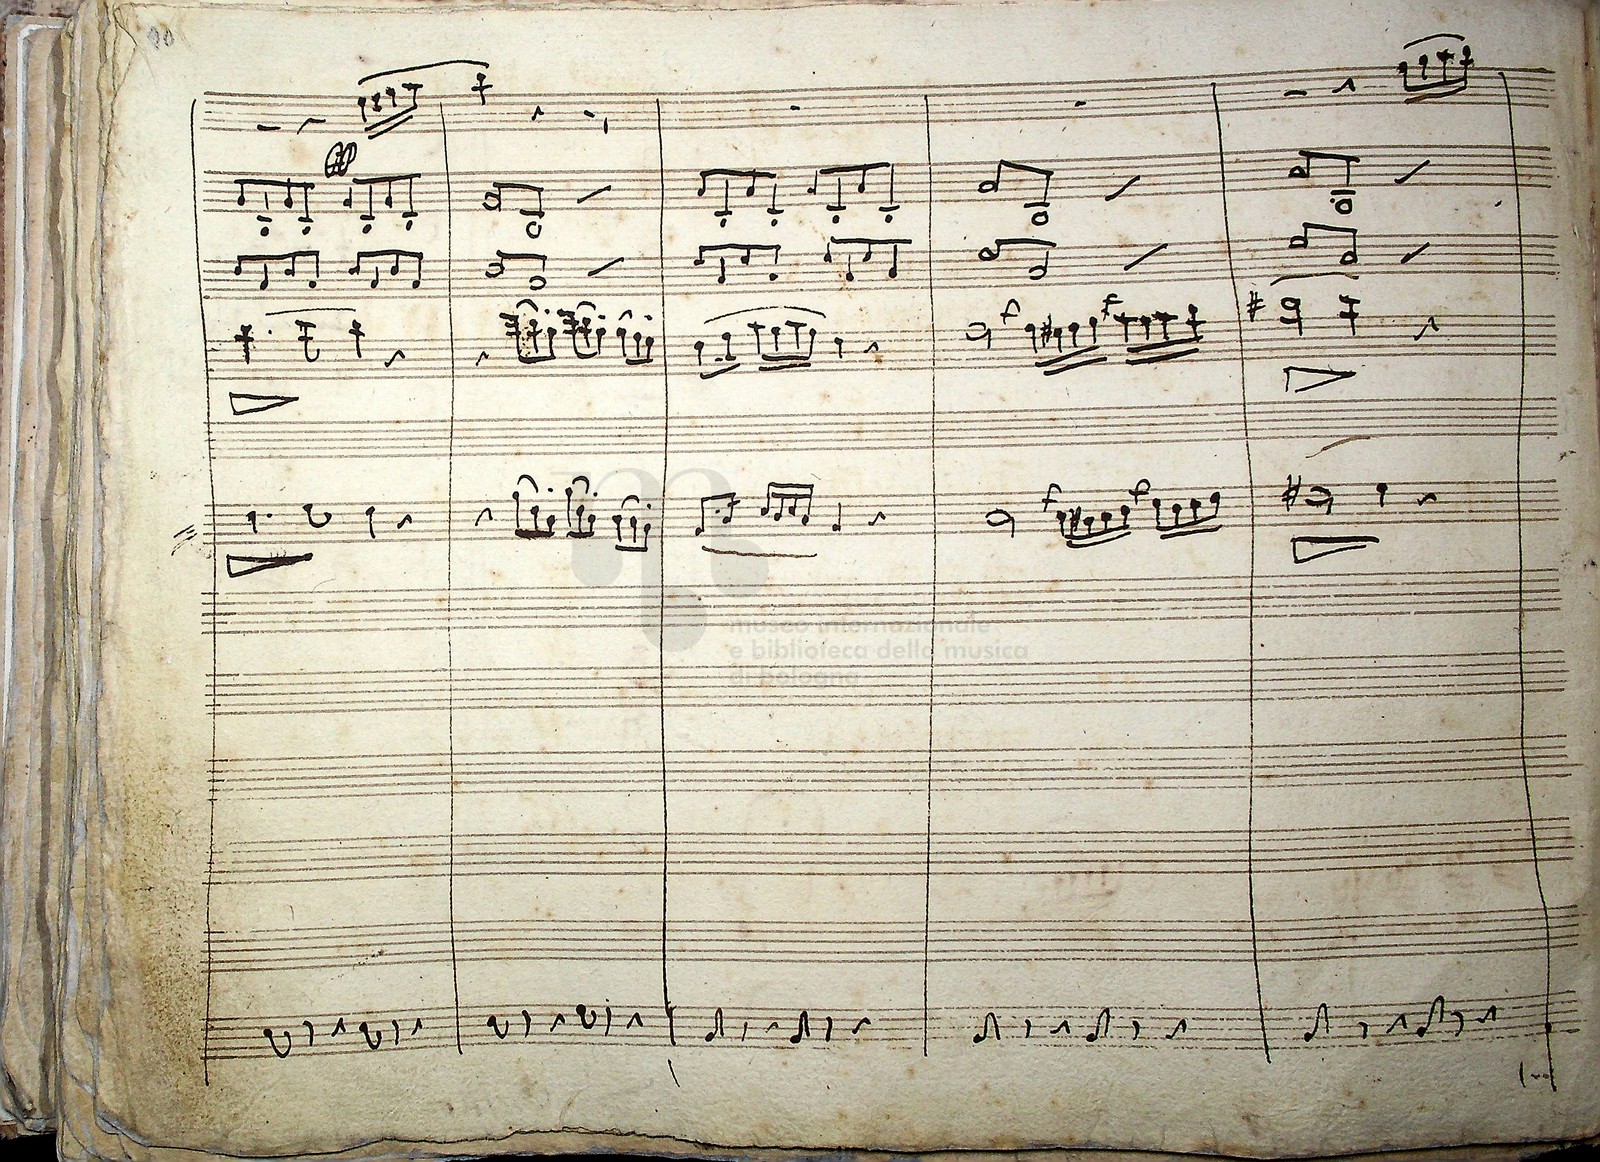 f f
f f
museo internazionale
e biblioteca della musica
di bologna